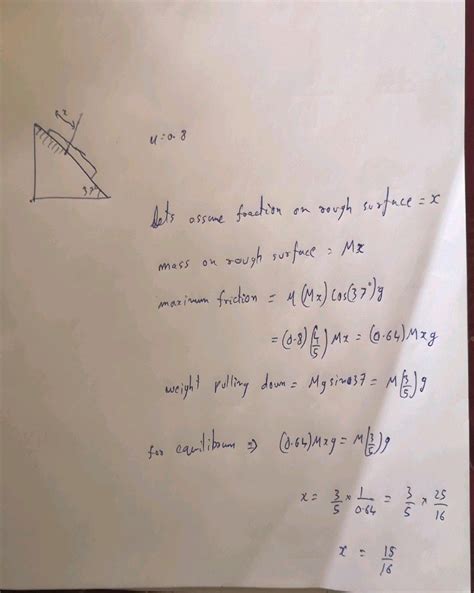 x
37°
u = 0.8
lets assume fraction on rough surface = x
mass on rough surface = Mx
maximum friction = u (Mx) Cos(37°)g
= (0.8) (4/5) Mx = (0.64) Mxg
weight pulling down = Mg sin037 = M(3/5)g
for equilibrium ⇒ (0.64) Mxg = M(3/5)g
x = 3/5 × 1/0.64 = 3/5 × 25/16
x = 15/16